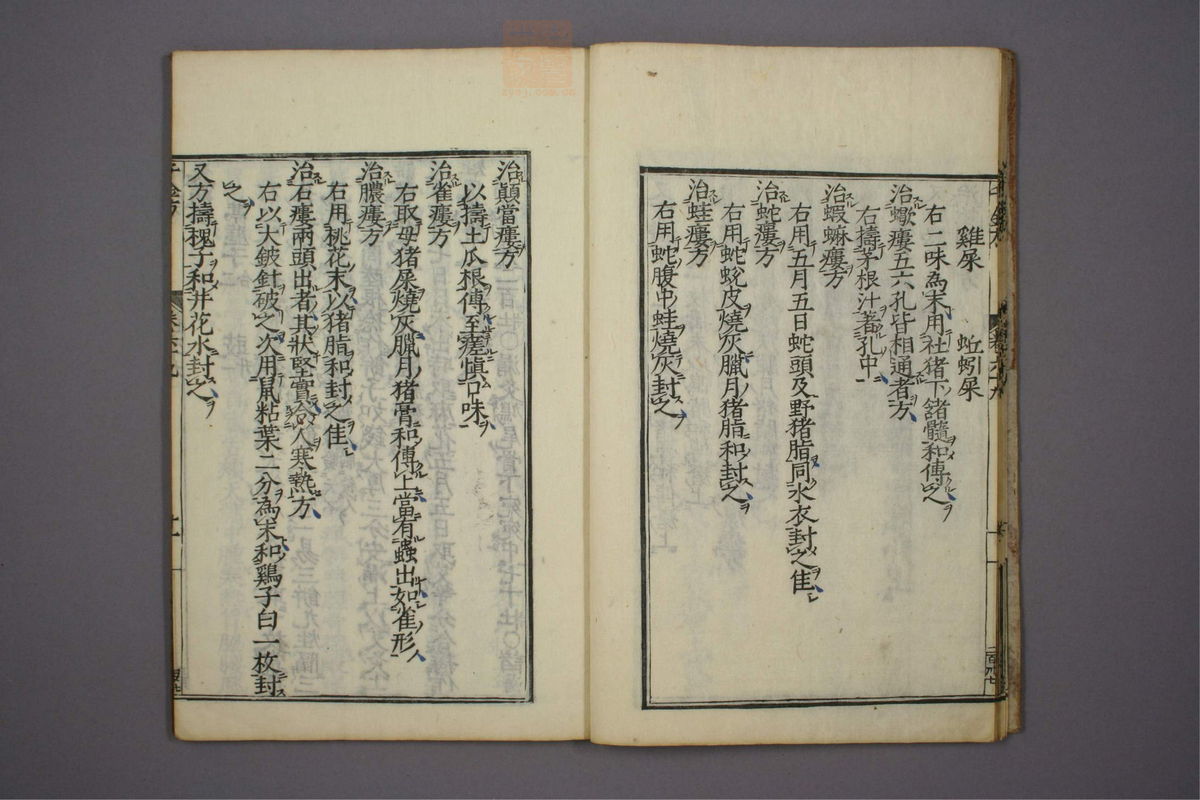 雞屎　蚯蚓屎
右二味為末用社猪下鋸髓和傅之
治蠍瘻五六孔皆相通者方
右擣茅根汁著孔中
治蝦蟆瘻方
右用五月五日蛇頭及野猪脂同水衣封之佳
治蛇瘻方
右用蛇蛻皮燒灰臘月猪脂和封之
治蛙瘻方
右用蛇腹中蛙燒灰封之
治顛當瘻方
以擣土瓜根傅至瘥慎口味
治雀瘻方
右取母猪屎燒灰臘月猪膏和傅上當有蟲出如雀形
治膿瘻方
右用桃花末以猪脂和封之佳
治石瘻兩頭出者其狀堅實令人寒熱方
右以大鈹針破之次用鼠粘葉二分為末和鷄子白一枚封
之
又方擣槐子和井花水封之